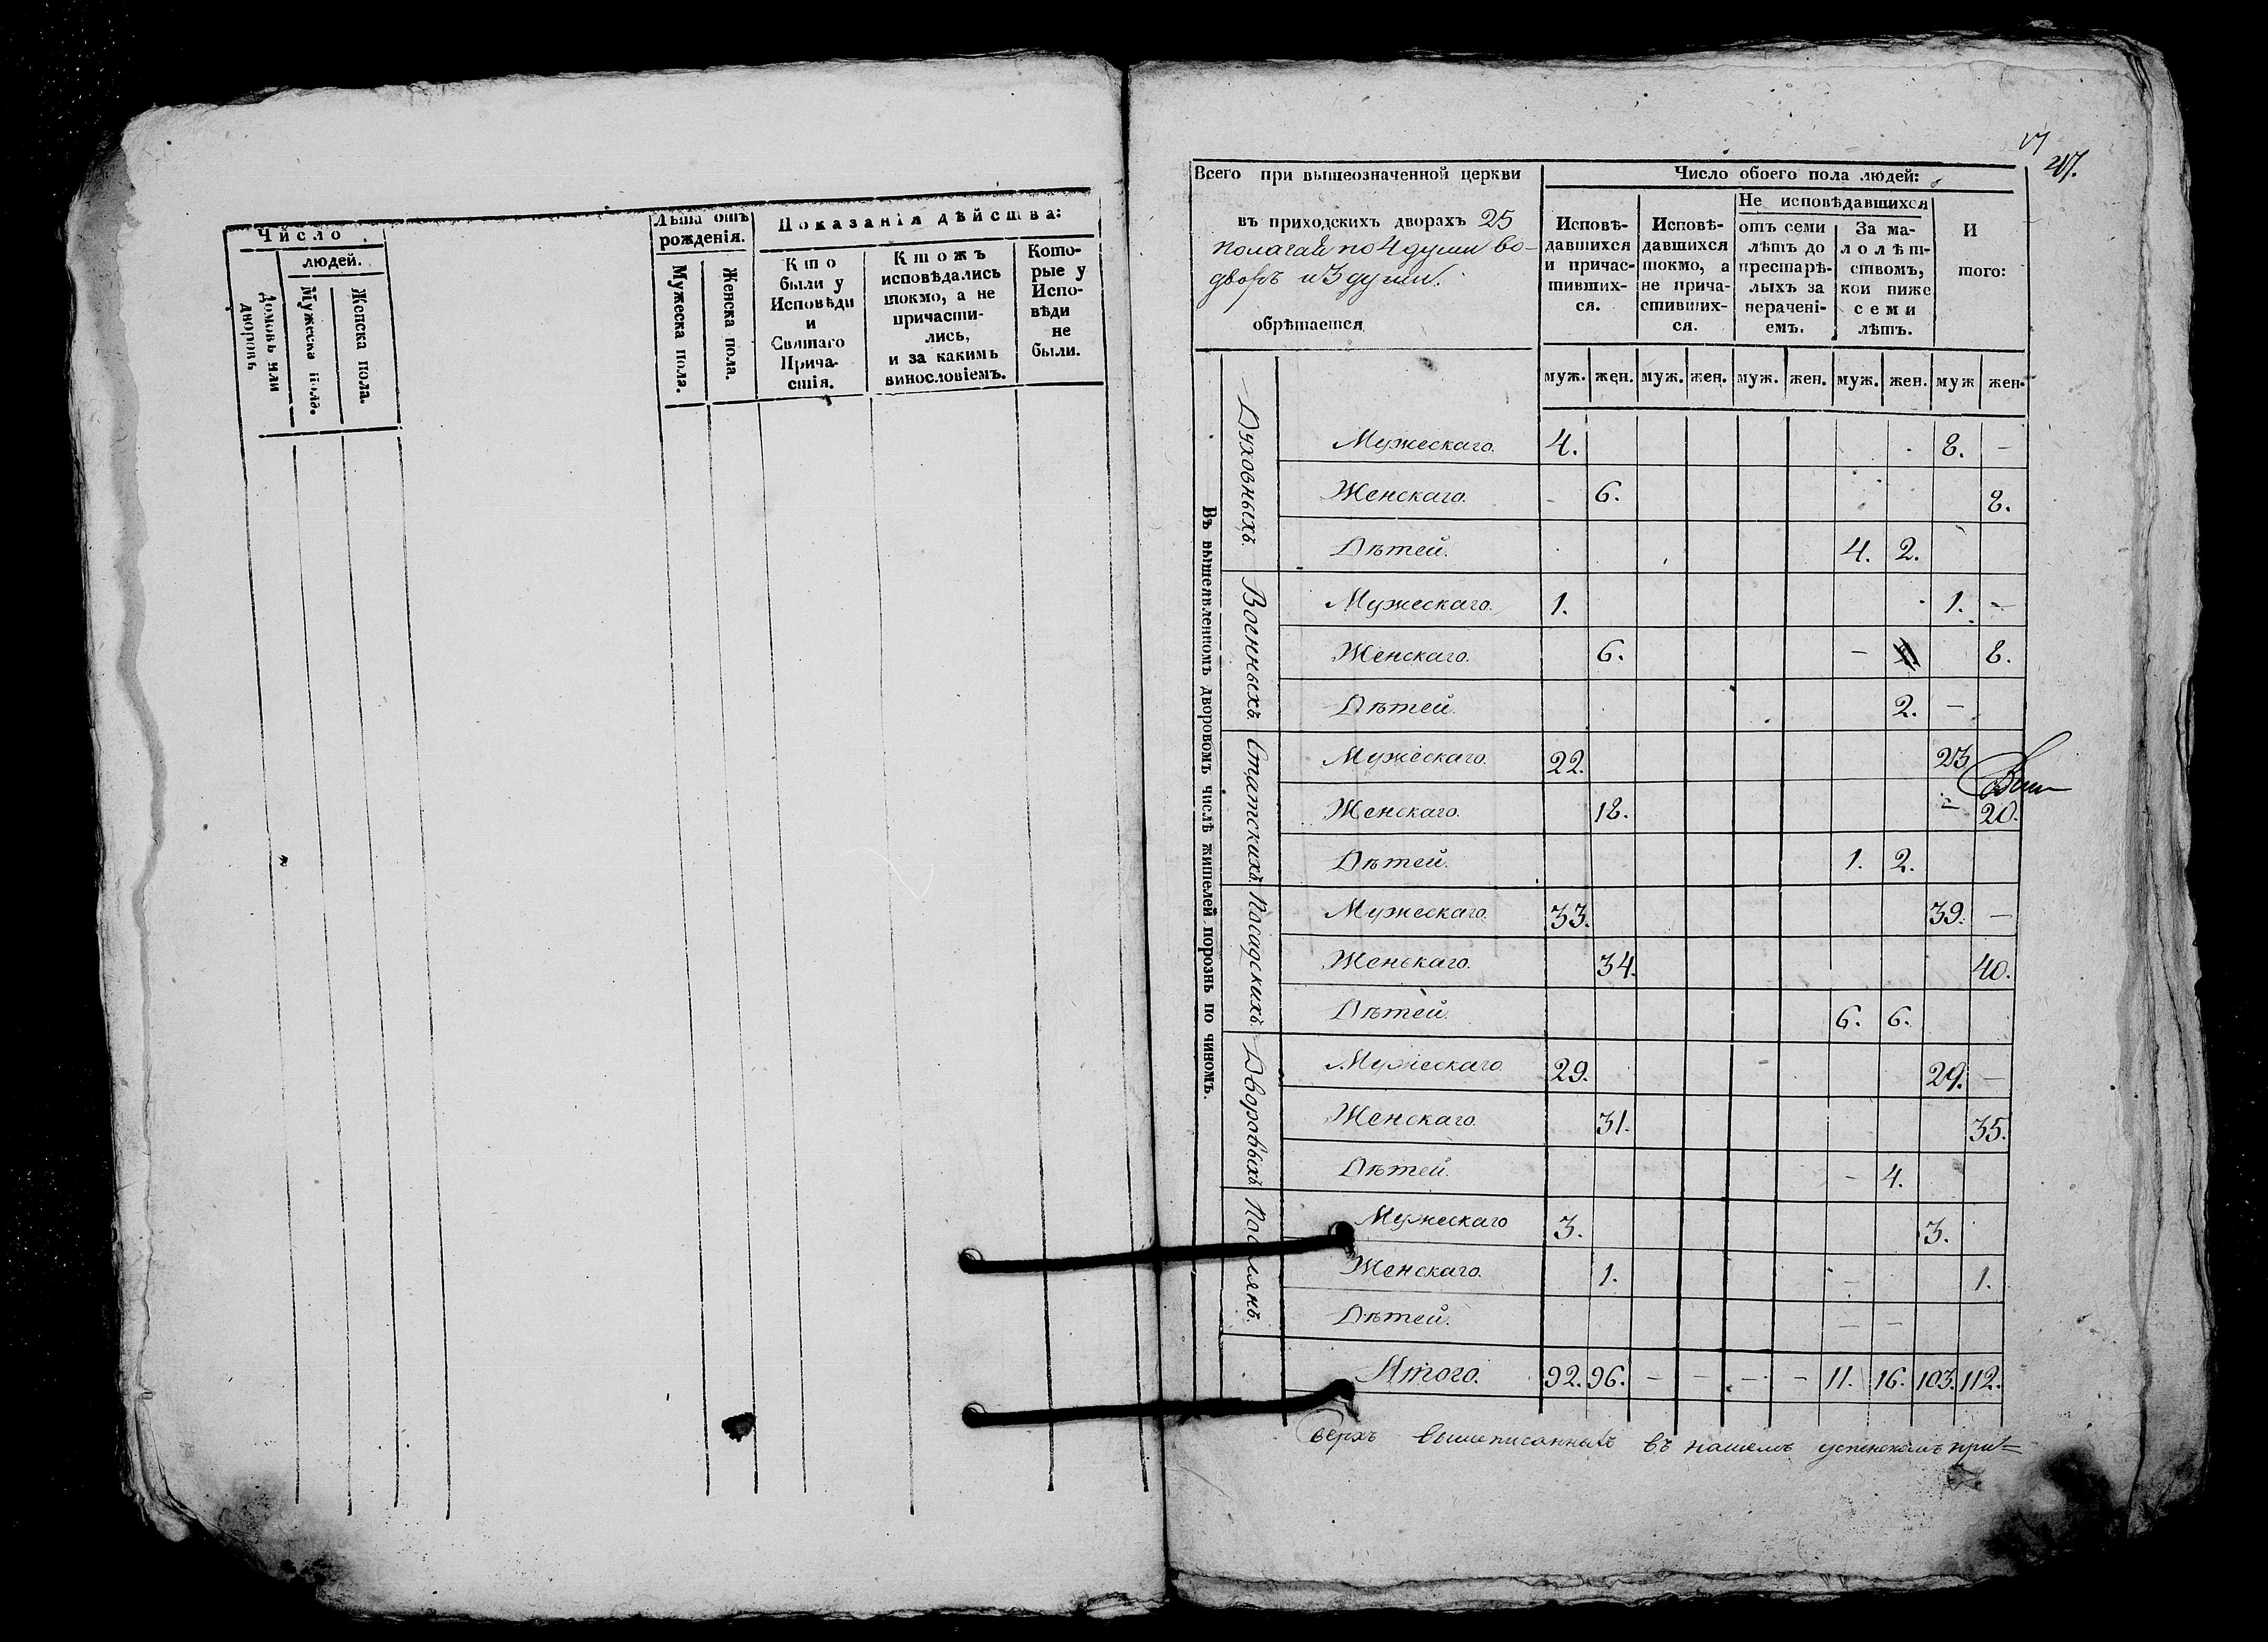 Число
людей.
Домовъ или дворовъ
Мужеска пола.
Женска пола.
Лѣта отъ рожденія.
Мужеска пола.
Женска пола.
Показанія дѣйства:
Кто
были у
Исповѣди
и
Святаго
Прича-
стія.
Ктожъ
исповѣдались
токмо, а не
причасти-
лись,
и за какимъ
винословіемъ.
Кото-
рые у
Испо-
вѣди
не
были.
Всего при вышеозначенной церкви
въ приходскихъ дворахъ 25
полагая по 4 души во-
дворъ и 3 души.
обрѣтается
Число обоего пола людей:
Исповѣ-
давшихся
и причас-
тивших-
ся.
Исповѣ-
давшихся
токмо, а
не прича-
стивших-
ся.
Не исповѣдавшихся
отъ семи
лѣтъ до
престарѣ-
лыхъ за
нерачені-
емъ.
За ма-
лолѣт-
ствомъ,
кои ниже
семи
лѣтъ.
И
того:
муж. жен. муж. жен. муж. жен. муж. жен. муж жен.
Въ вышеявленномъ дворовомъ числѣ жителей порознь по чиномъ.
Духовныхъ.
Мужескаго. 4. 8. –
Женскаго. – 6. 8.
Дѣтей. 4. 2.
Военныхъ.
Мужескаго. 1. 1. –
Женскаго. 6. – 8.
Дѣтей. 2. –
Статскихъ.
Мужескаго. 22. 23
Женскаго. 18. – 20.
Дѣтей. 1. 2.
Посадскихъ.
Мужескаго. 33. 39. –
Женскаго. 34. 40.
Дѣтей. 6. 6.
Дворовыхъ.
Мужескаго 29. 29. –
Женскаго. 31. 35.
Дѣтей. – 4.
Поселянъ.
Мужескаго 3. 3.
Женскаго. 1. – 1.
Дѣтей. – –
Итого. 92. 96. – – – – 11. 16. 103. 112.
Сверхъ вышеписанныхъ въ нашемъ успенскомъ при=